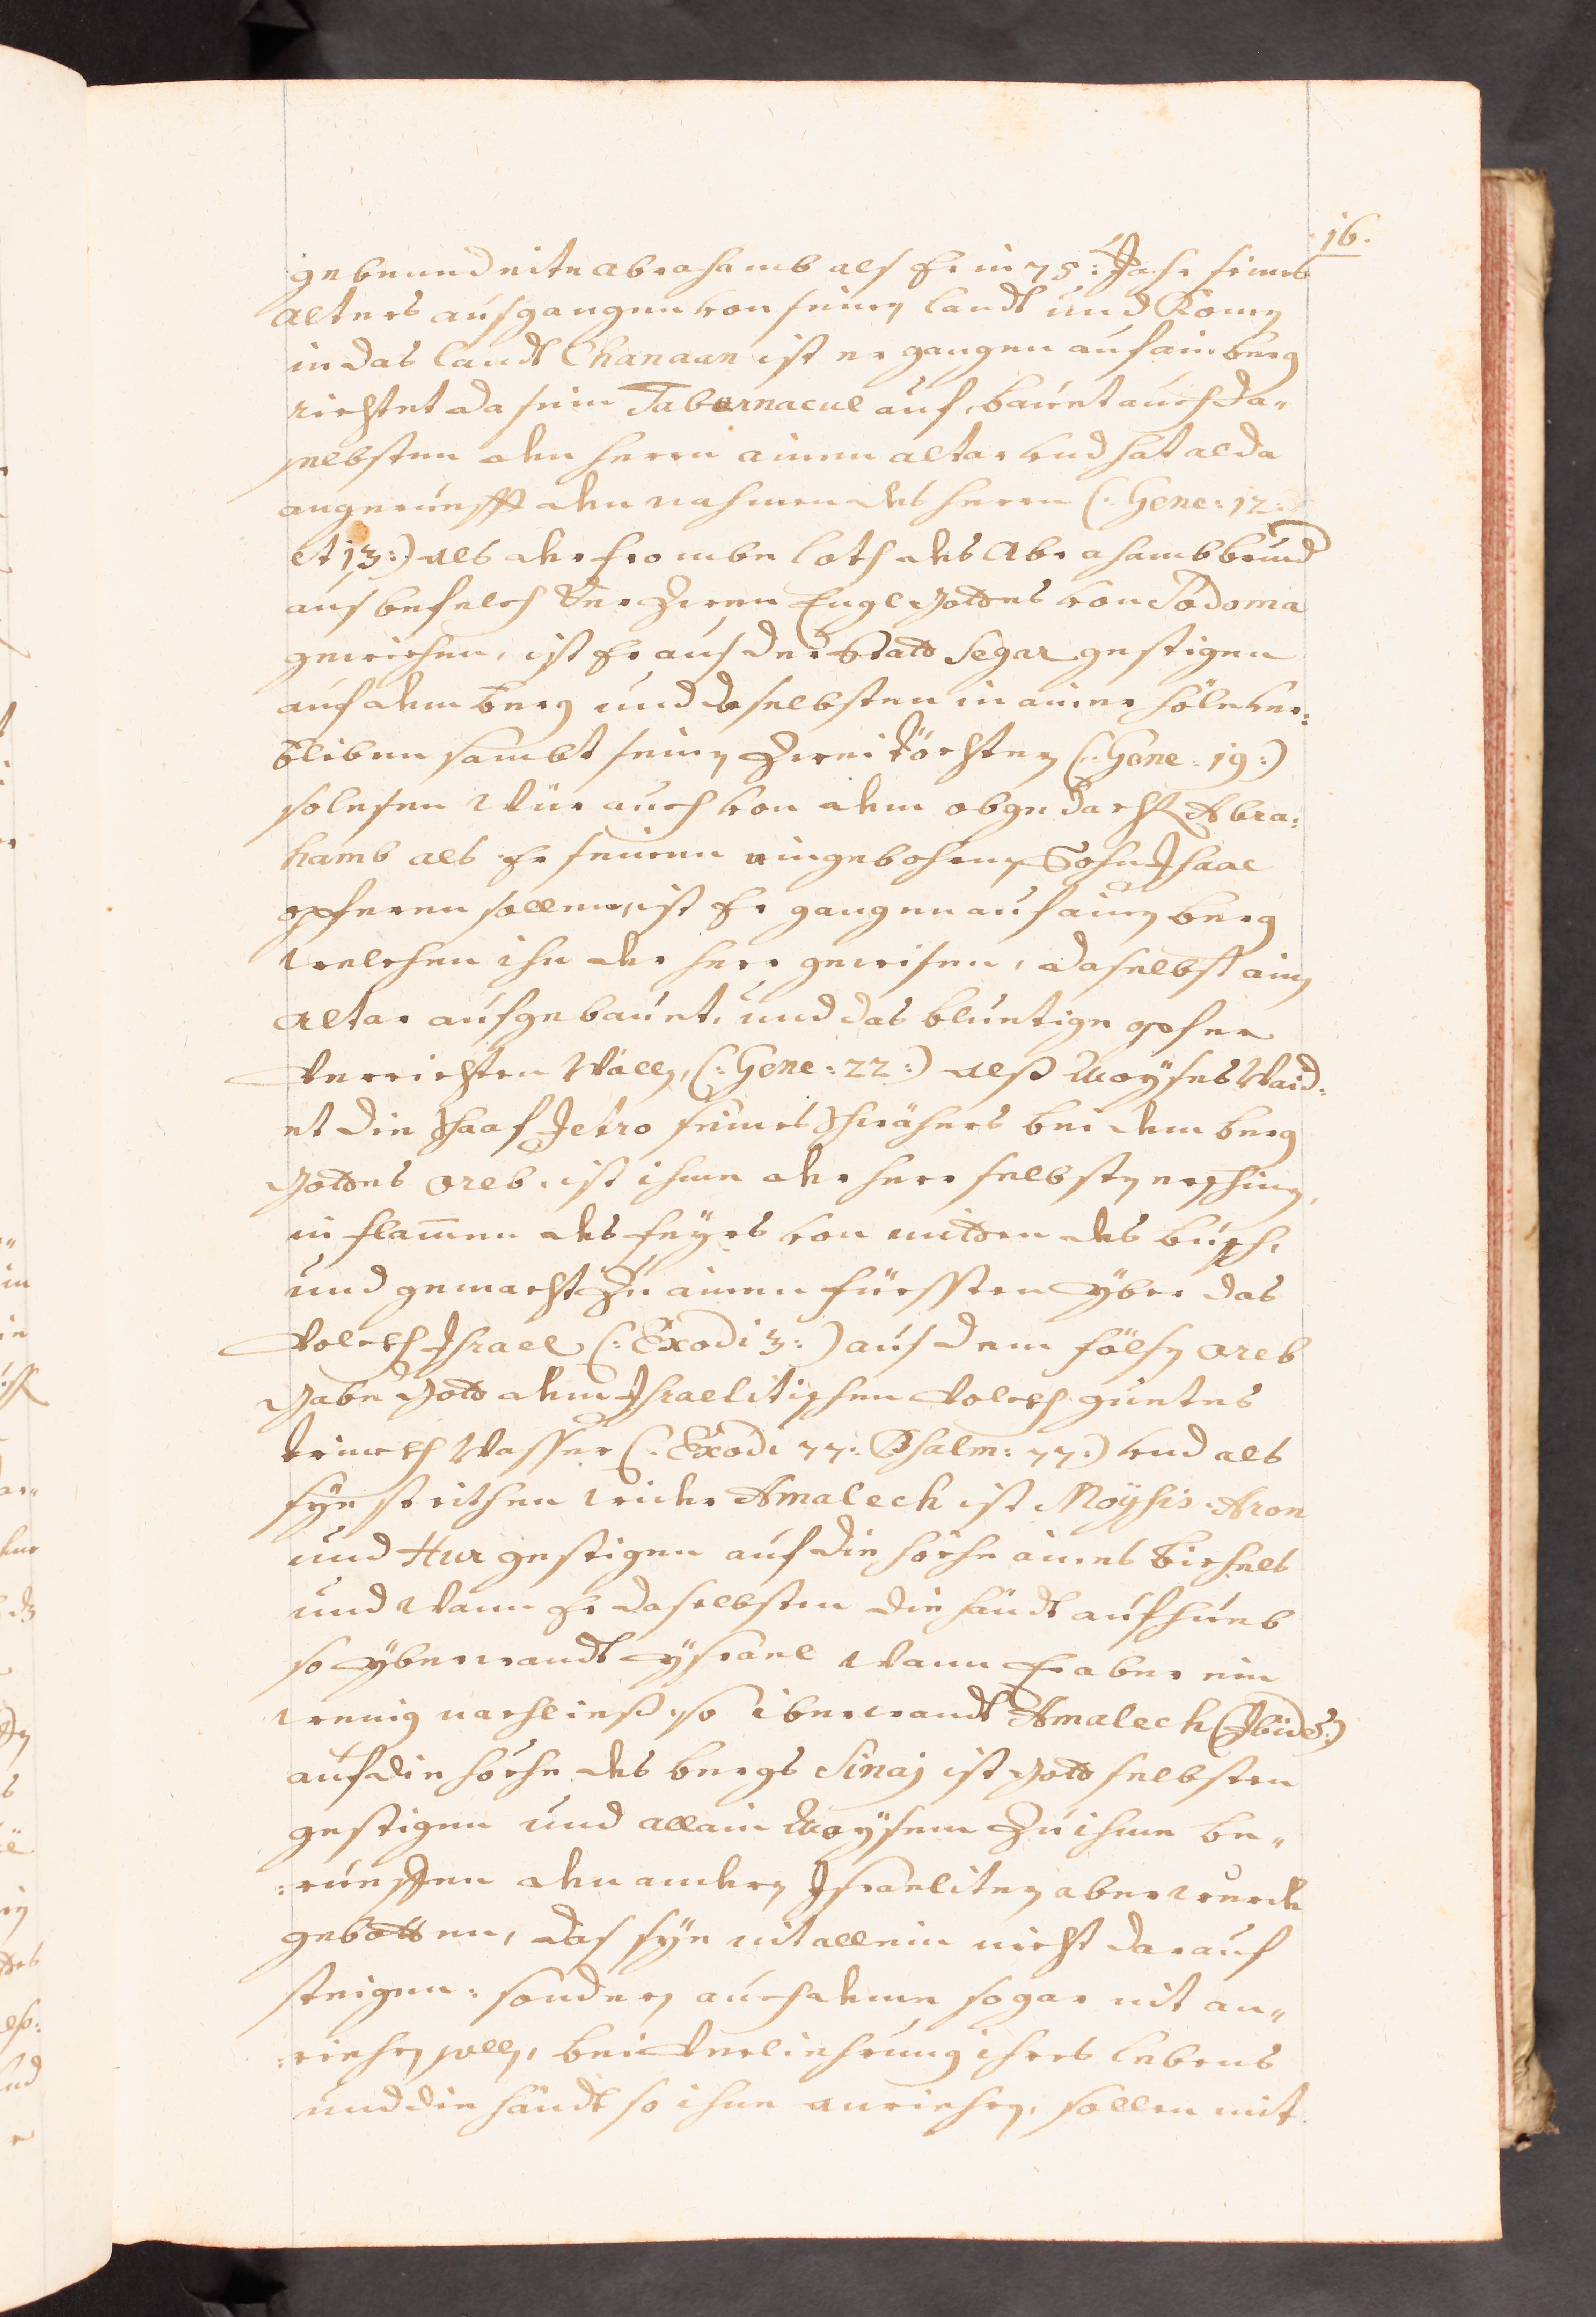 16.
gebenndeite Abrahamb als Er in 75: Jahr seines
alters ausgangen von seinen landt und Komen
in das landt Chanaan ist er gangen auf ain berg
richtet da sein Tabernacul auf, bauet auch da„
selbsten den herrn ainen altar und hat alda
angerueffft den nahmen des herrn (: Gene: 12:
et 13:) als der frombe loth des Abrahambs brued
aus befelch der Zwen Engl Gottes von Sodoma
gewichen, ist Er aus der Statt Segar gestigen
auf dem berg und daselbsten in ainer höle ver:
bliben sambt seinen Zwei töchtern (: Gene: 19:)
so lesen Wür auch von dem obgedacht Abra:
hamb als Er seinen aingebohrnen Sohn Isaac
opferen sollen, ist Er gangen auf ainen berg
welchen ihn der herr gewisen, daselbst ain
altar aufgebauet, und das bluetige opfer
Verrichten Wöllen, (: Gene: 22:) alß Moyses Waid:
et die Schaaf Jetro seines Schwähers bei dem berg
Gottes Oreb. ist ihme der herr selbsten erschinen,
in flamen des feyrs von mitten des busch,
und gemacht Zu ainen fürssten yber das
Volckh Israel (: Exodi 3:) aus dem fölsen Oreb
Gabe Gott dem Israelitischen Volckh guetes
trinckh Wasser (: Exodi 77: Psalm: 77:) und als
sye stritten wider Amalech ist Moysis. Aron
und Hur gestigen auf die höche aines bichels
und Wann Er daselbsten die händt aufhueb
so yberwandt ysrael Wann Er aber ein
wenig nachließ, so iberwandt Amalech (Ibide:)
auf die höche des bergs Sinaj ist Gott selbsten
gestigen und allain Moysem Zu ihme be„
:rueffen den andern Israeliten aber wurde
gebotten, das sye nit allein nicht darauf
steigen: sondern auch deme sogar nit an„
:riehren solln, bei Verliehrung ihres lebens
und die händt so ihne anriehren, sollen mit